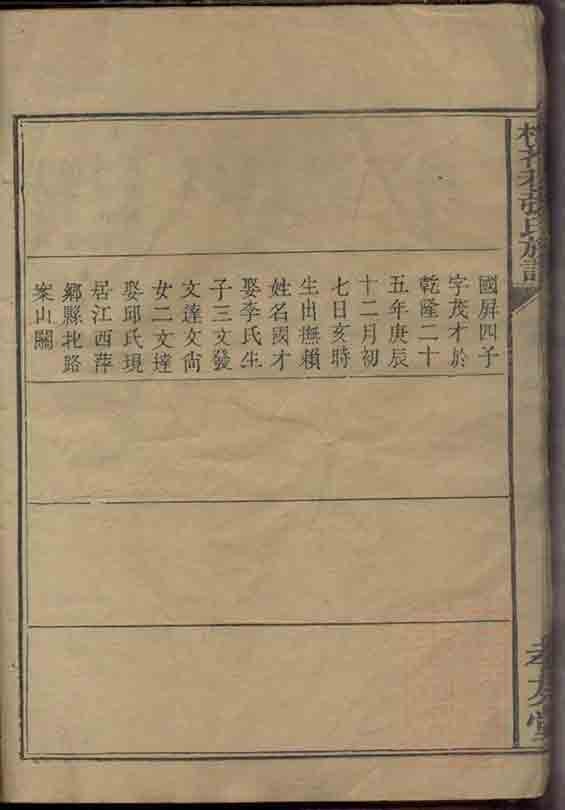 國屏四子
字茂才於
乾隆二十
五年庚辰
十二月初
七日亥時
生出撫賴
姓名國才
娶李氏生
子三文發
文達文尙
女二文達
娶邱氏現
居江西萍
鄉縣北路
案山關
張氏族譜
孝友堂